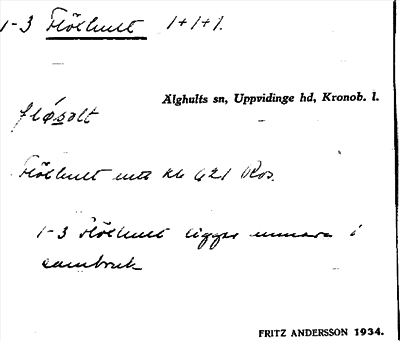 1-3 Flöshult 1+1+1.
Älghults sn, Uppvidinge hd, Kronob. l.
fløsolt
Flöshult mtl kb 621 Ros.
1-3 Flöshult ligger numera i
sambruk
FRITZ ANDERSSON 1934.